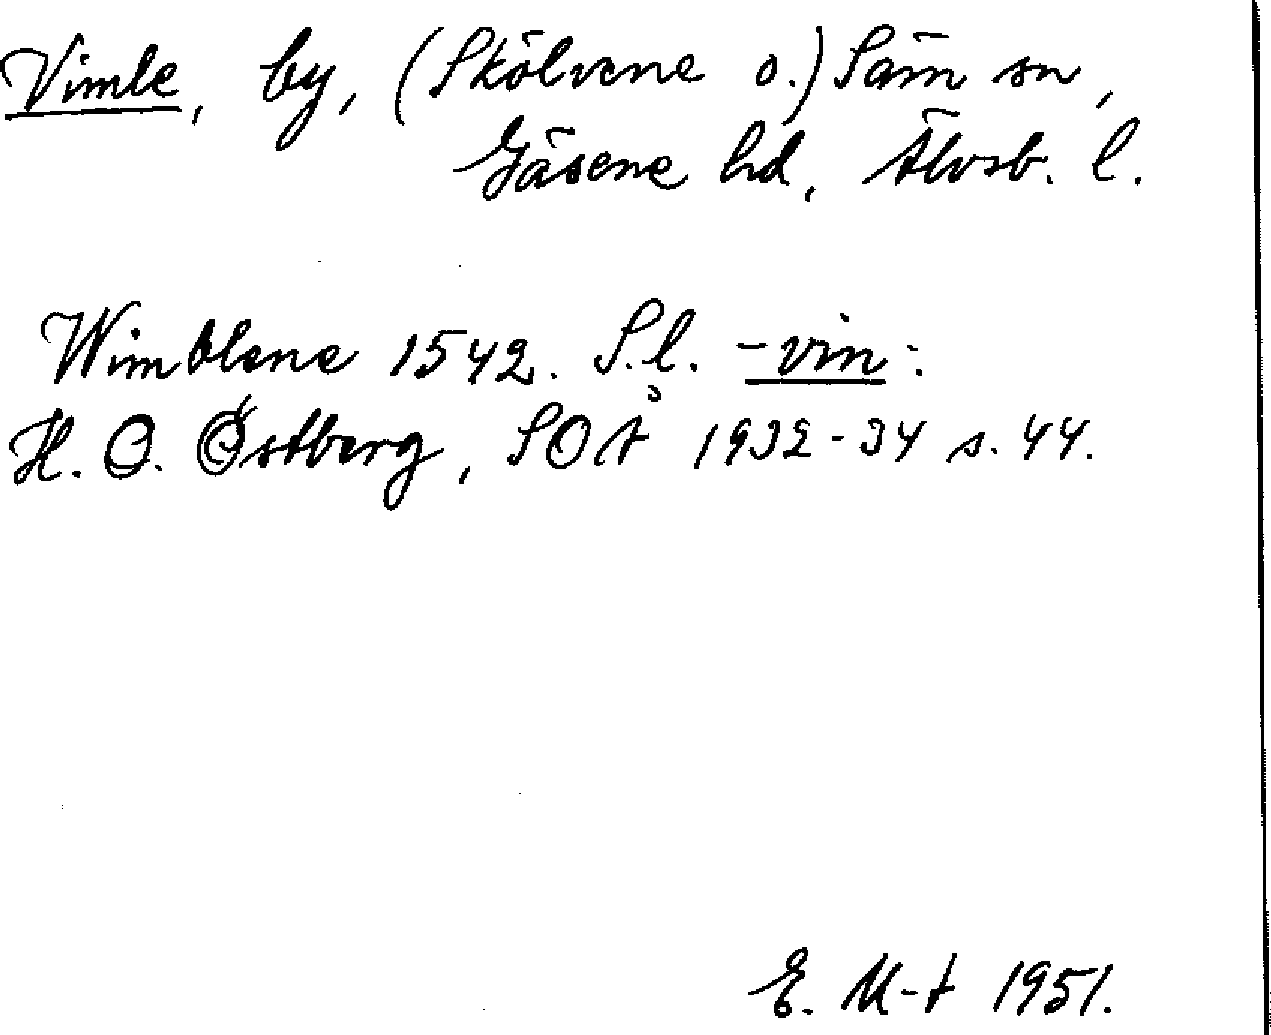 Vimle, by, (Skölvene o.) Säm sn,
Gäsene hd, Älvsb. l.
Wimblene 1542. S.l. -vin:
H. O. Östberg, SOÅ 1932-34 s. 44.
E. M-t 1951.